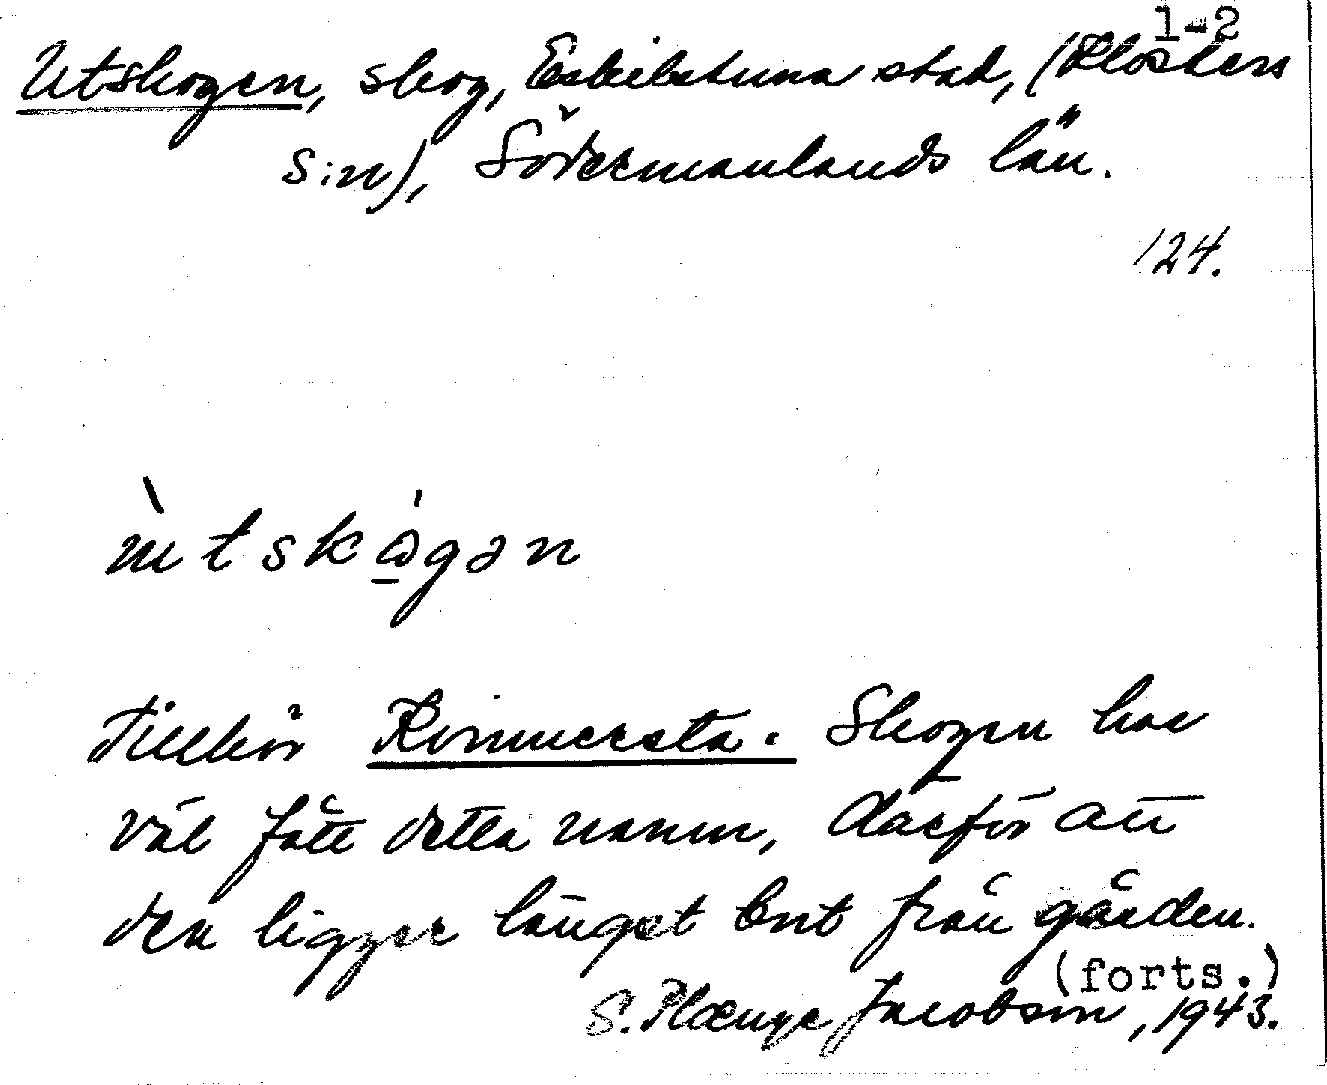 1-2
Utskogen, skog, Eskilstuna stad, (Klosters
s:n), Södermanlands län.
124.
ùtskó̠gən
Tillhör Rinmersta. Skogen har
väl fått detta namn, därför att
den ligger längst bort från gården.
(forts.)
S. Plænge Jacobson, 1943.